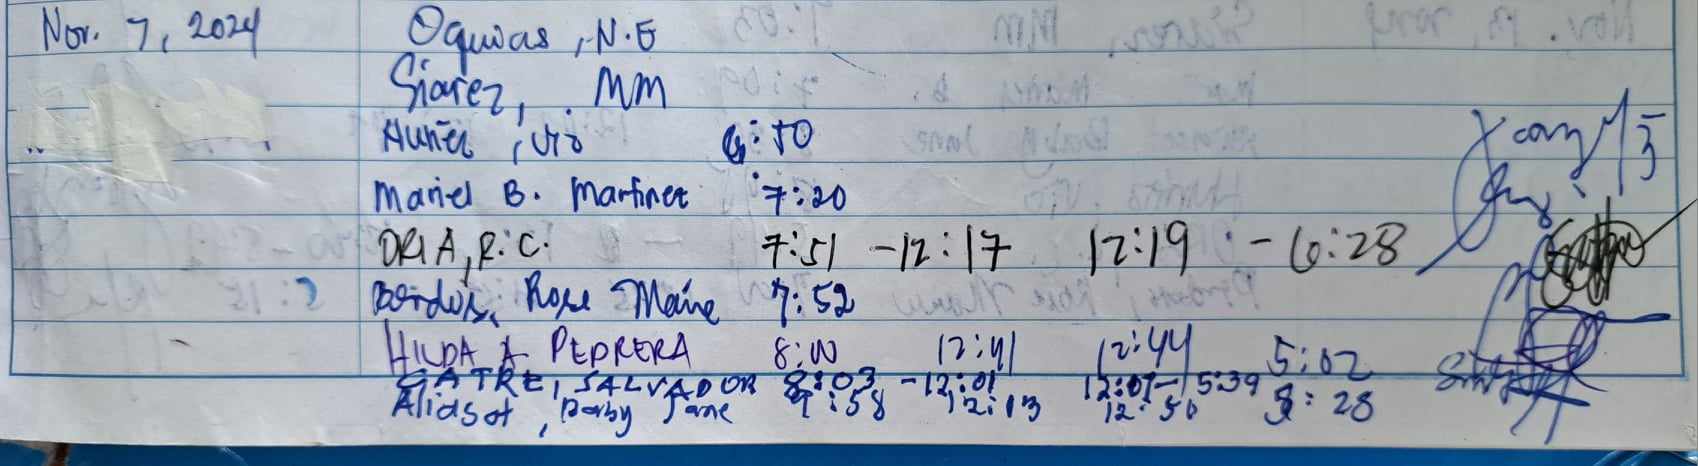 Nov. 7, 2024 Oquias, N.E
Siarez, MM
Huñez, Vio 6:50
Mariel B. Martinez 7:20
ORIA, R.C. 7:51 -12:17 12:19 - 6:28
Rose Marie 7:52
HILDA A PEDRERA 8:00 12:41 12:44 5:02
GATRE, SALVADOR 8:03 -12:01 12:07- 5:39
Aliasot, Baby Jane 7:58 12:13 12:50 28